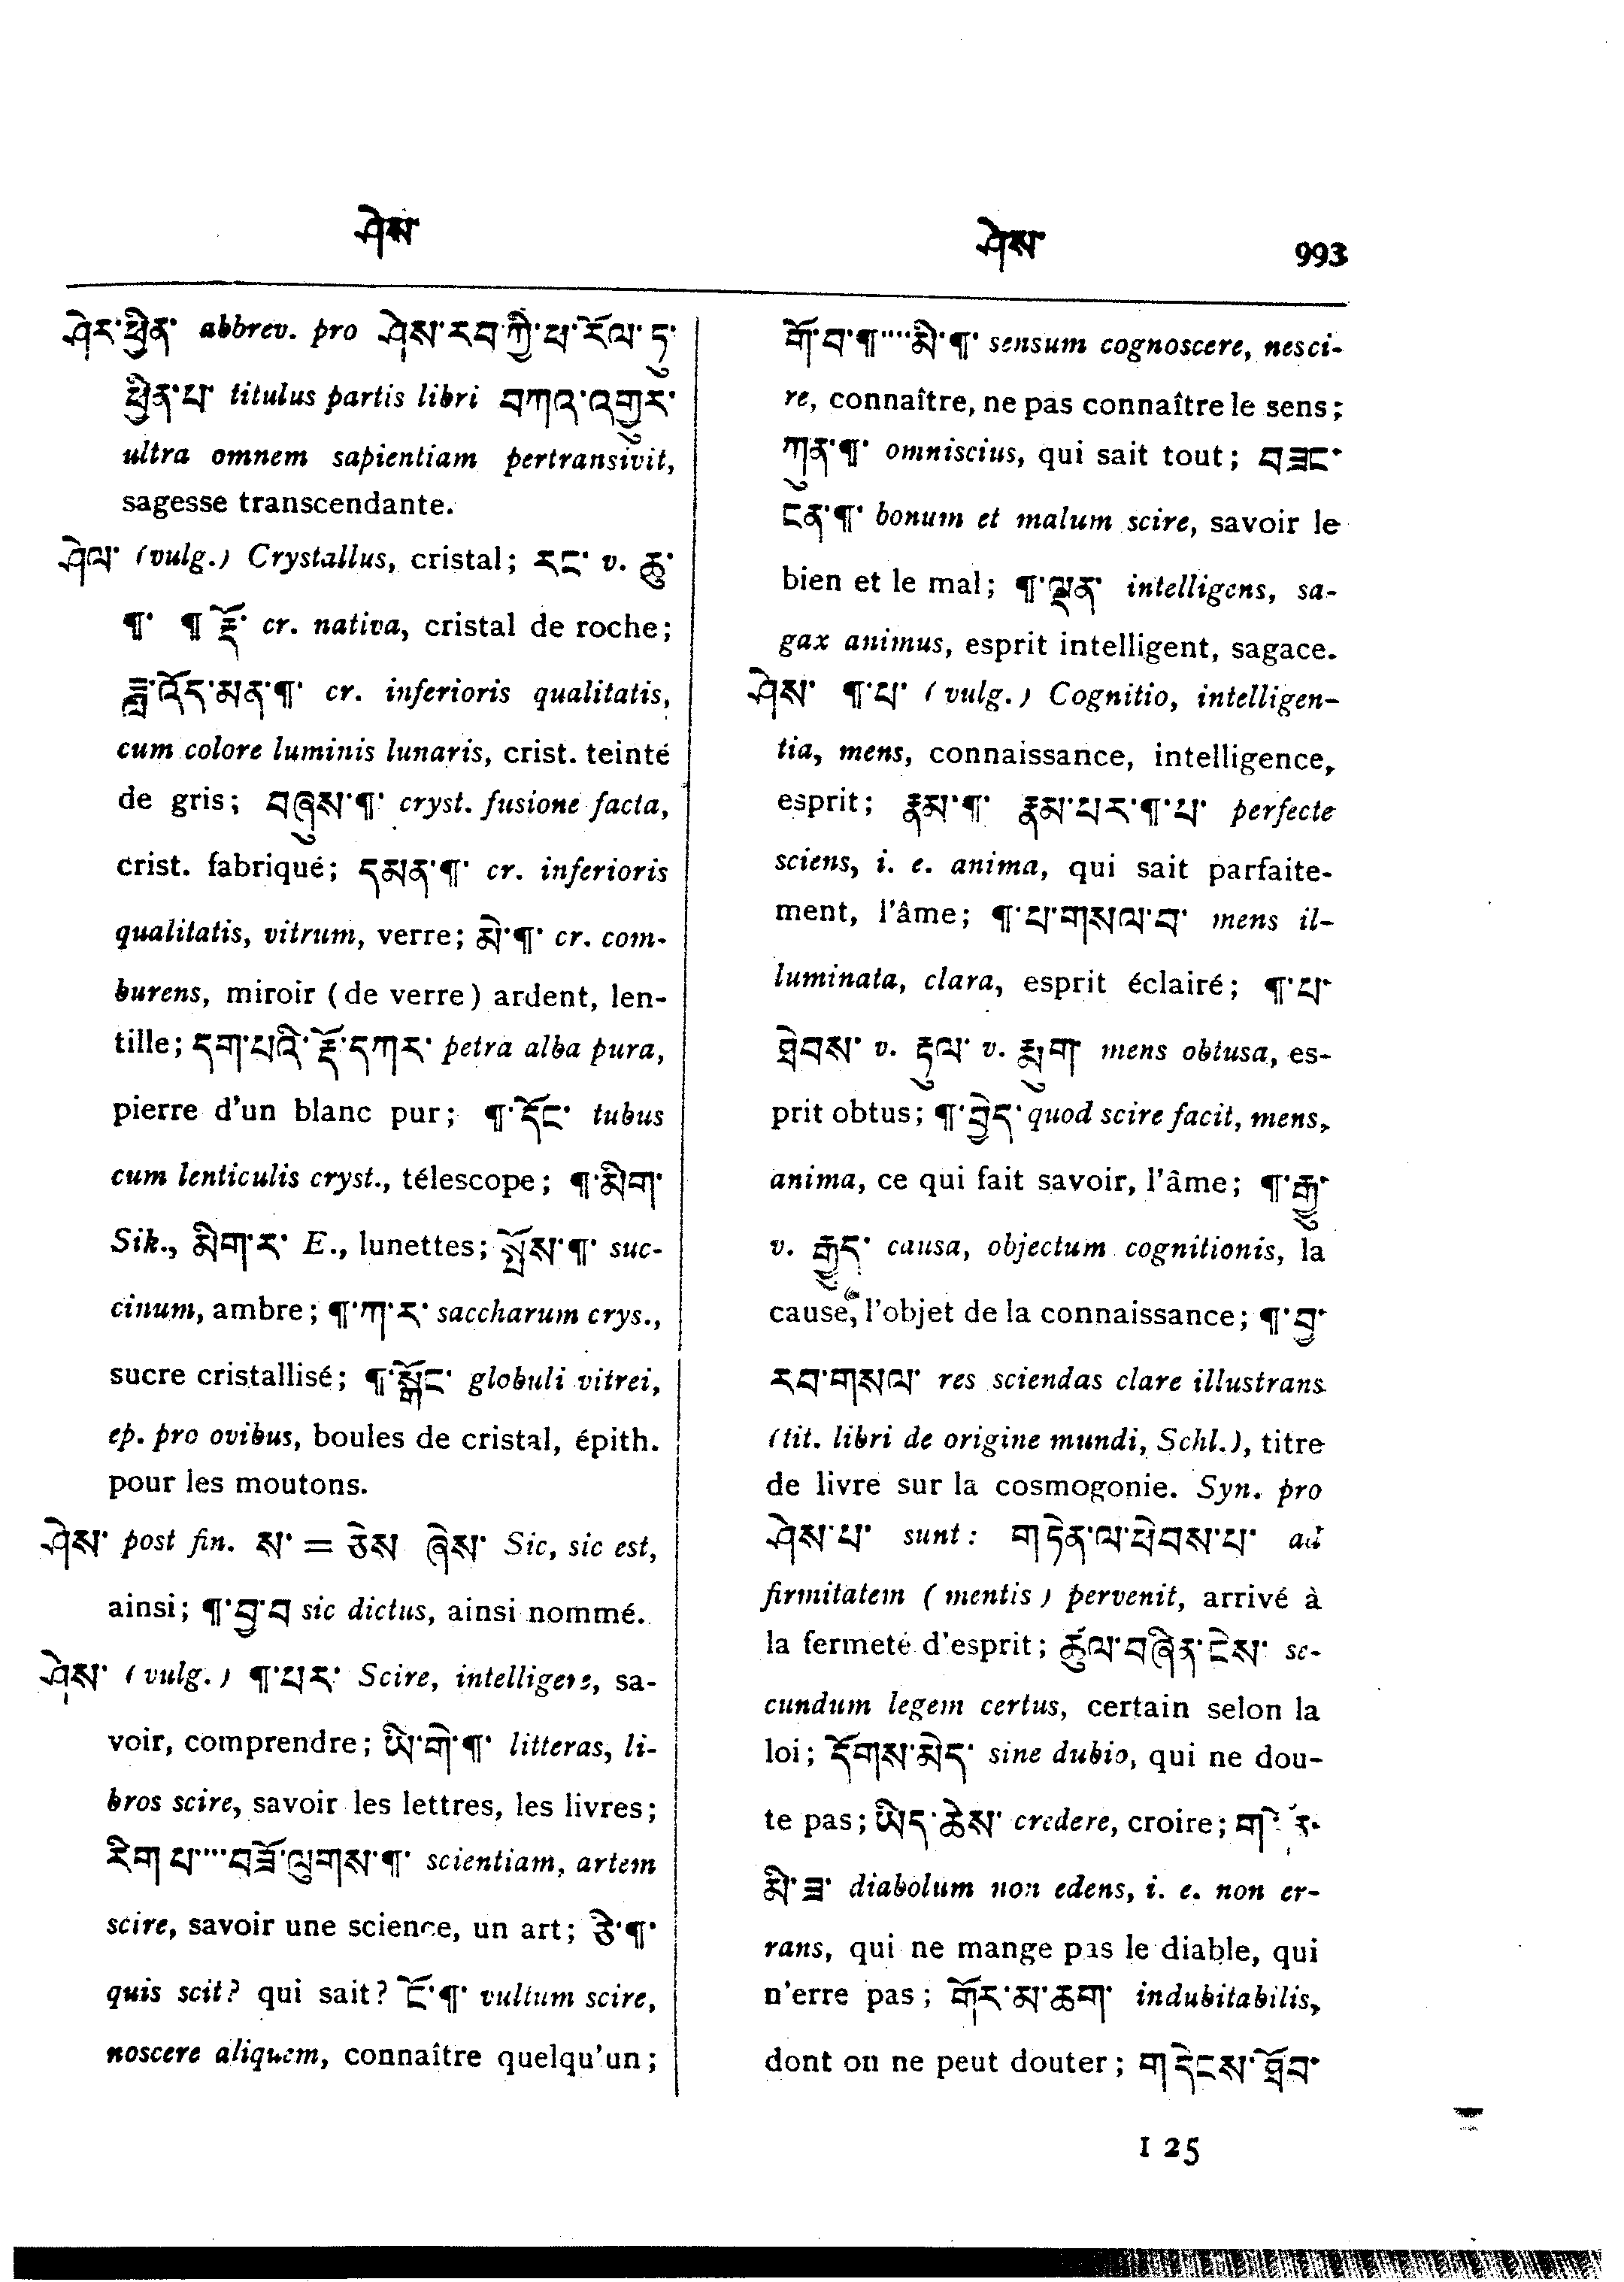 ཤེས་ ཤེས་ 993
ཤེར་ཕྱིན་ abbrev. pro ཤེས་རབ་ཀྱི་ཕ་རོལ་ཏུ་
ཕྱིན་པ་ titulus partis libri བཀའ་འགྱུར་
ultra omnem sapientiam pertransivit,
sagesse transcendante.
ཤེལ་ (vulg.) Crystallus, cristal; རང་ v. ཆུ་
¶་ ¶ རྡོ་ cr. nativa, cristal de roche;
ཟླ་འོད་མན་¶་ cr. inferioris qualitatis,
cum colore luminis lunaris, crist. teinté
de gris; བཞུས་¶་ cryst. fusione facta,
crist. fabriqué; དམན་¶་ cr. inferioris
qualitatis, vitrum, verre; མེ་¶་ cr. com-
burens, miroir (de verre) ardent, len-
tille; དག་པའི་རྡོ་དཀར་ petra alba pura,
pierre d'un blanc pur; ¶་དོང་ tubus
cum lenticulis cryst., télescope; ¶་མིག་
Sik., མིག་ར་ E., lunettes; སྤོས་¶་ suc-
cinum, ambre; ¶་ཀ་ར་ saccharum crys.,
sucre cristallisé; ¶་སྒོང་ globuli vitrei,
ep. pro ovibus, boules de cristal, épith.
pour les moutons.
ཤེས་ post fin. ས་ = ཅེས ཞེས་ Sic, sic est,
ainsi; ¶་བྱ་བ sic dictus, ainsi nommé.
ཤེས་ (vulg.) ¶་པར་ Scire, intelligere, sa-
voir, comprendre; ཡི་གེ་¶་ litteras, li-
bros scire, savoir les lettres, les livres;
རིག པ་....བཟོ་ལུགས་¶་ scientiam, artem
scire, savoir une science, un art; ཅེ་¶་
quis scit? qui sait? ངོ་¶་ vultum scire,
noscere aliquem, connaître quelqu'un;
གོ་བ་¶་....མི་¶་ sensum cognoscere, nesci-
re, connaître, ne pas connaître le sens;
ཀུན་¶་ omniscius, qui sait tout; བཟང་
ངན་¶་ bonum et malum scire, savoir le
bien et le mal; ¶་ལྡན་ intelligens, sa-
gax animus, esprit intelligent, sagace.
ཤེས་ ¶་པ་ (vulg.) Cognitio, intelligen-
tia, mens, connaissance, intelligence,
esprit; རྣམ་¶་ རྣམ་པར་¶་པ་ perfecte
sciens, i. e. anima, qui sait parfaite-
ment, l'âme; ¶་པ་གསལ་བ་ mens il-
luminata, clara, esprit éclairé; ¶་པ་
ཐེབས་ v. རྟུལ་ v. རྨུག mens obtusa, es-
prit obtus; ¶་བྱེད་ quod scire facit, mens,
anima, ce qui fait savoir, l'âme; ¶་རྒྱུ་
v. རྒྱུད་ causa, objectum cognitionis, la
cause, l'objet de la connaissance; ¶་བྱ་
རབ་གསལ་ res sciendas clare illustrans
(tit. libri de origine mundi, Schl.), titre
de livre sur la cosmogonie. Syn. pro
ཤེས་པ་ sunt: གདེན་ལ་ཕེབས་པ་ ad
firmitatem (mentis) pervenit, arrivé à
la fermeté d'esprit; ཚུལ་བཞིན་ངེས་ se-
cundum legem certus, certain selon la
loi; དོགས་མེད་ sine dubio, qui ne dou-
te pas; ཡིད་ཆེས་ credere, croire;
མི་ཟ་ diabolum non edens, i. e. non er-
rans, qui ne mange pas le diable, qui
n'erre pas; གོར་མ་ཆག་ indubitabilis,
dont on ne peut douter; གདེངས་ཐོབ་
I 25